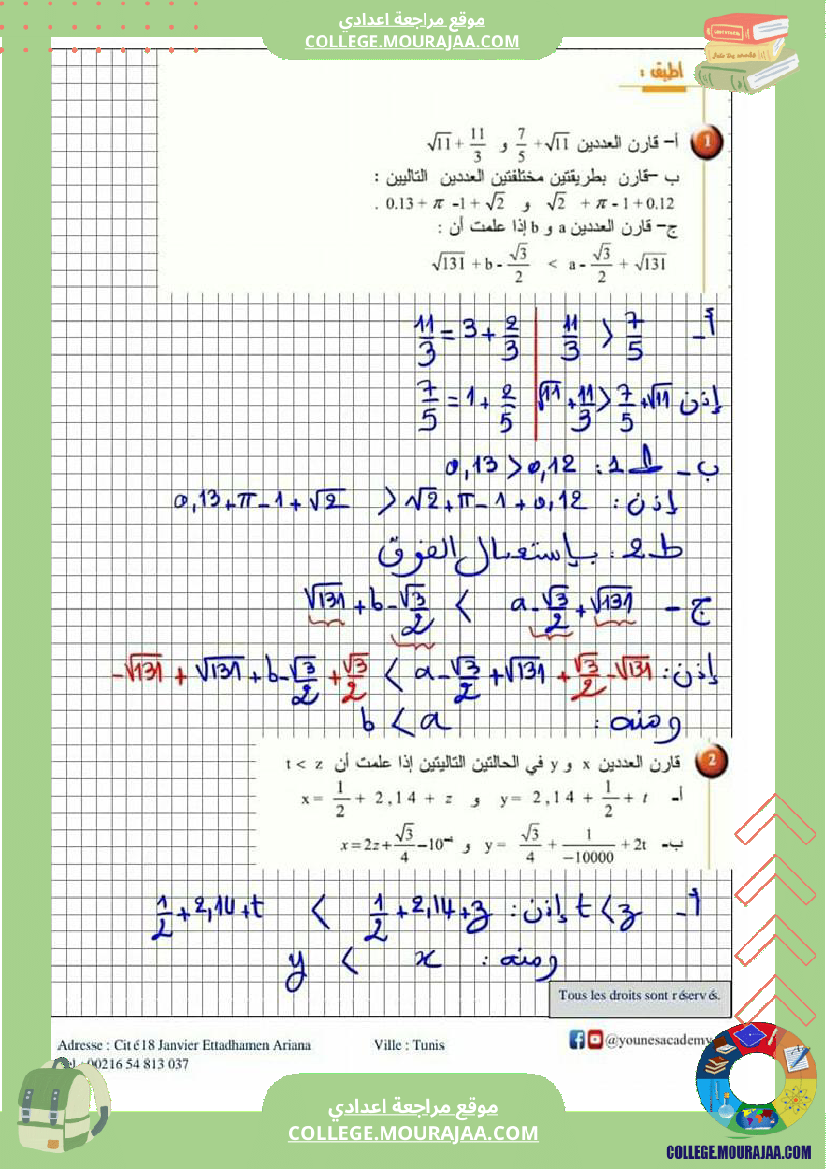 موقع مراجعة اعدادي
COLLEGE.MOURAJAA.COM
اطبق :
1
أ– قارن العددين √11 + 7/5 و 11/3 + √11
ب –قارن بطريقتين مختلفتين العددين التاليين :
0.13 + π -1 + √2 و √2 + π - 1 + 0.12 .
ج– قارن العددين a و b إذا علمت أن :
√131 + b - √3/2 < a - √3/2 + √131
أ- 11/3 > 7/5 | 11/3 = 3 + 2/3
إذن √11 + 11/3 > 7/5 + √11 | 7/5 = 1 + 2/5
ب- ط1 : 0,13 > 0,12
إذن : 0,13 + π - 1 + √2 > √2 + π - 1 + 0,12
ط2 : بإستعمال الفرق
ج - √131 + b - √3/2 < a - √3/2 + √131
إذن : -√131 + √131 + b - √3/2 + √3/2 < a - √3/2 + √131 + √3/2 - √131
ومنه : b < a
2
قارن العددين x و y في الحالتين التاليتين إذا علمت أن t < z
أ- x = 1/2 + 2,14 + z و y = 2,14 + 1/2 + t
ب- x = 2z + √3/4 – 10⁻⁴ و y = √3/4 + 1/–10000 + 2t
أ- t < z إذن : 1/2 + 2,14 + t < 1/2 + 2,14 + z
ومنه : y < x
Tous les droits sont réservés.
Adresse : Cité 18 Janvier Ettadhamen Ariana
Ville : Tunis
@younesacademy
00216 54 813 037
موقع مراجعة اعدادي
COLLEGE.MOURAJAA.COM
COLLEGE.MOURAJAA.COM